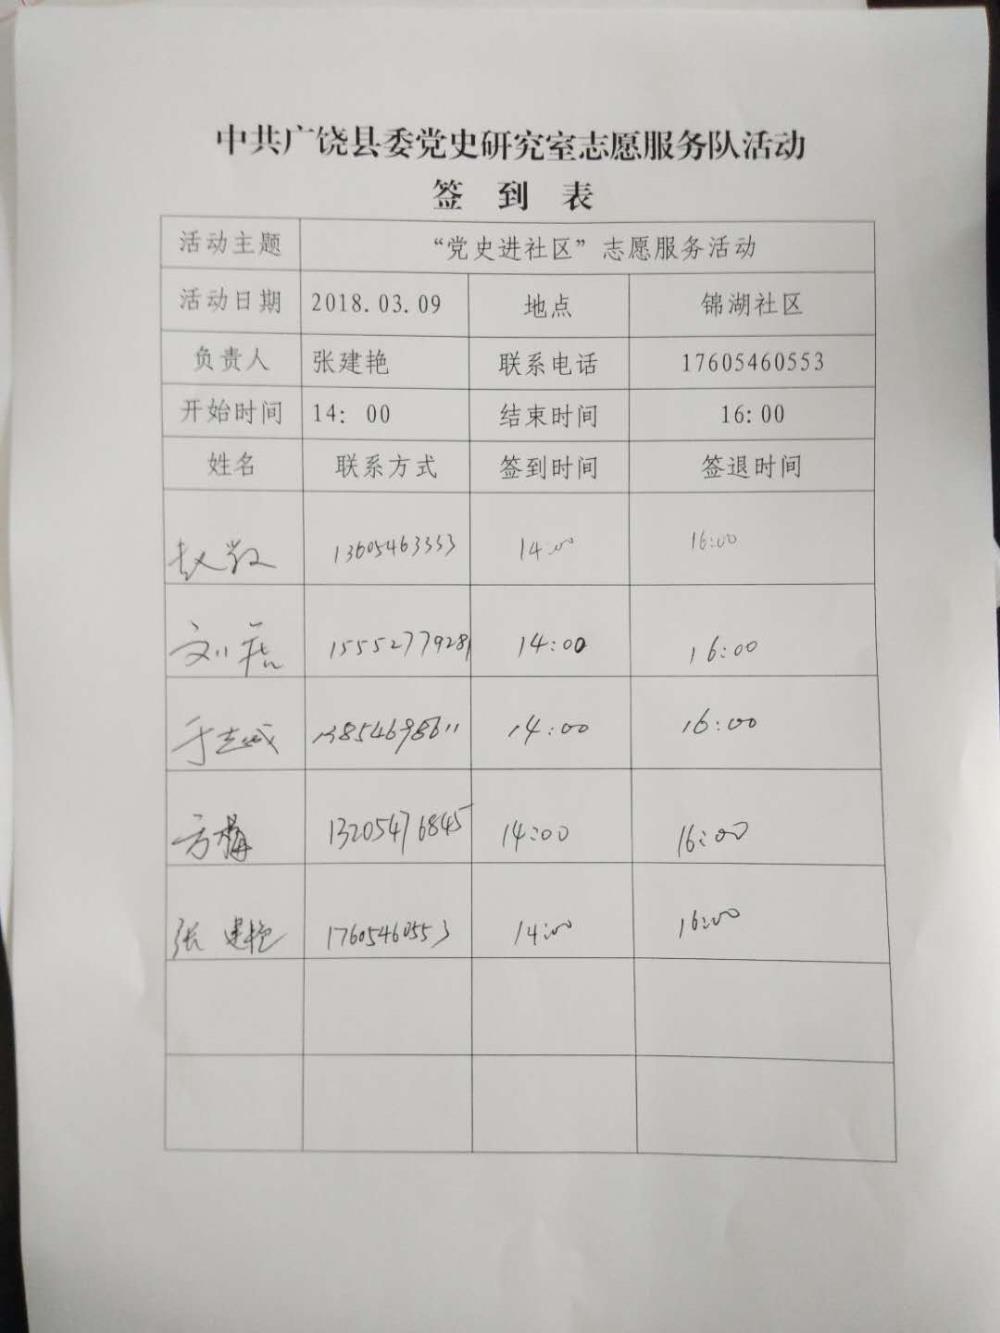 中共广饶县委党史研究室志愿服务队活动
签 到 表
活动主题 “党史进社区”志愿服务活动
活动日期 2018.03.09 地点 锦湖社区
负责人 张建艳 联系电话 17605460553
开始时间 14: 00 结束时间 16:00
姓名 联系方式 签到时间 签退时间
赵 13605463333 14:00 16:00
刘 15552779281 14:00 16:00
于志成 13854698611 14:00 16:00
方梅 13205476845 14:00 16:00
张建艳 17605460553 14:00 16:00